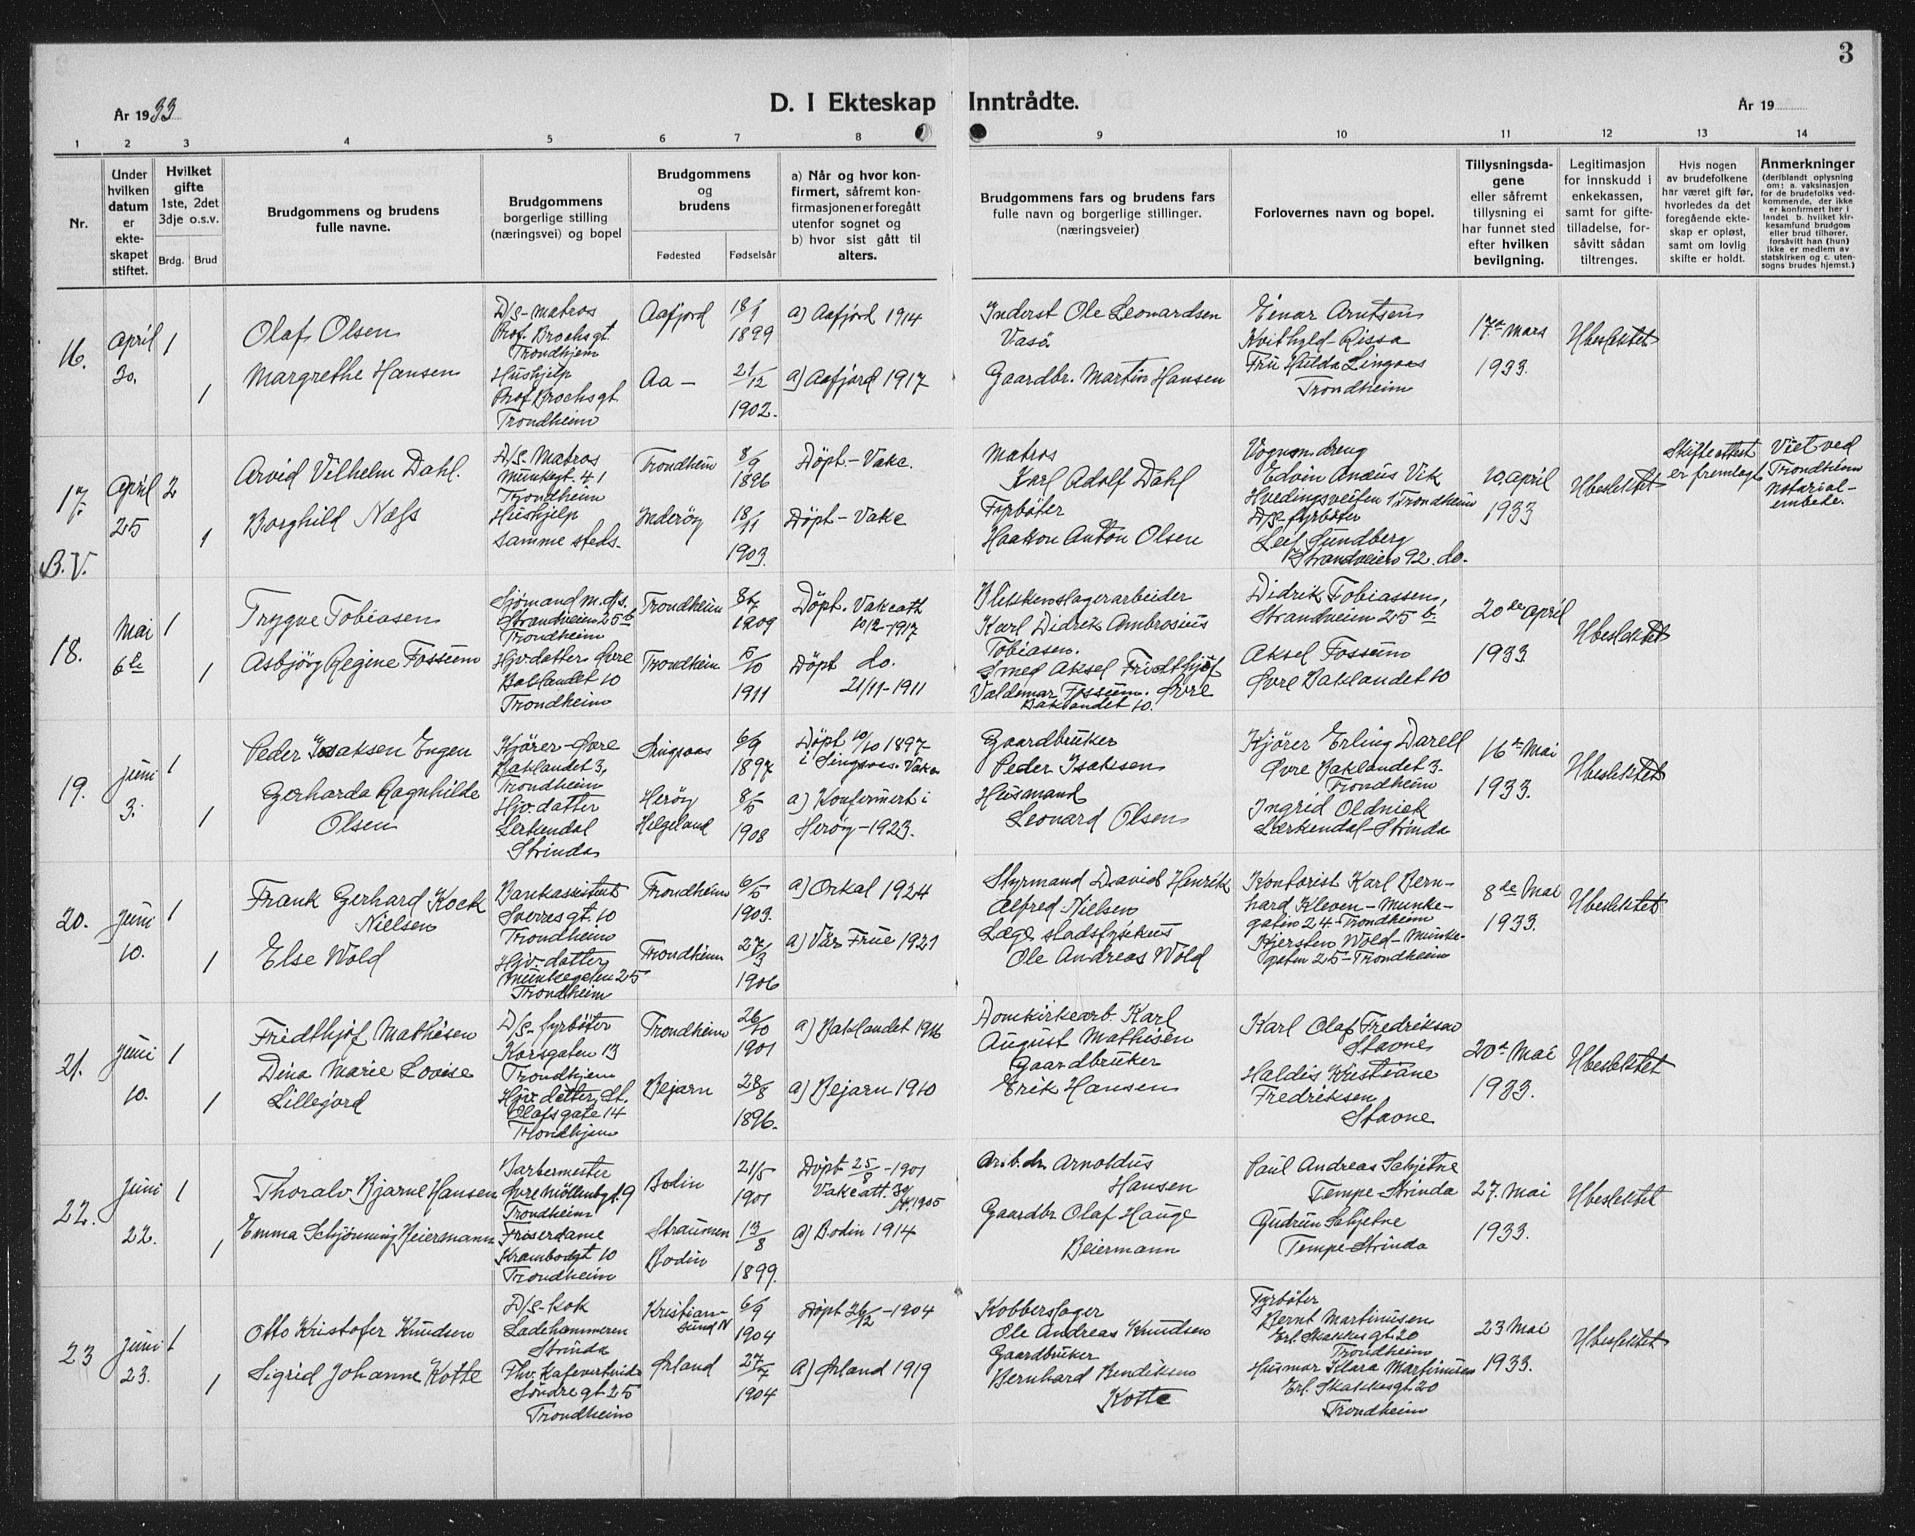 3
År 1933
D. I Ekteskap Inntrådte.
År 19
1 2 3 4 5 6 7 8 9 10 11 12 13 14
Nr.
Under hvilken datum er ekteskapet stiftet.
Hvilket gifte 1ste, 2det 3dje o.s.v.
Brdg. Brud
Brudgommens og brudens fulle navne.
Brudgommens borgerlige stilling (næringsvei) og bopel
Brudgommens og brudens
Fødested Fødselsår
a) Når og hvor konfirmert, såfremt konfirmasjonen er foregått utenfor sognet og
b) hvor sist gått til alters.
Brudgommens fars og brudens fars fulle navn og borgerlige stillinger. (næringsveier)
Forlovernes navn og bopel.
Tillysningsdagene eller såfremt tillysning ei har funnet sted efter hvilken bevilgning.
Legitimasjon for innskudd i enkekassen, samt for giftetilladelse, forsåvitt sådan tiltrenges.
Hvis nogen av brudefolkene har været gift før, hvorledes da det foregående ekteskap er opløst, samt om lovlig skifte er holdt.
Anmerkninger (deriblandt oplysning om: a. vaksinasjon for de brudefolks vedkommende, der ikke er konfirmert her i landet b. hvilket kirkesamfund brudgom eller brud tilhører, forsåvitt han (hun) ikke er medlem av statskirken og c. utensogns brudes hjemst.)
16. April 30. 1 1
Olaf Olsen
Margrethe Hansen
D/s-matros
Prof. Brochsgt.
Trondhjem
Hushjelp
Prof. Brochsgt
Trondheim
Aafjord 18/1 1899
Aa — 21/12 1902.
a) Aafjord 1914
a) Aafjord 1917
Inderst Ole Leonardsen
Vasö.
Gaardbr. Martin Hansen
Einar Arntsen
Kvithyld-Rissa
Fru Hilda Lingaas
Trondheim
17de mars
1933.
Ubeslektet
17. April 25 2 1
B.V.
Arvid Vilhelm Dahl.
Borghild Næss
D/s-Matros
Munkegt. 41
Trondheim
Hushjelp
samme steds.
Trondheim 8/9 1896
Inderöy 18/11 1903.
Döpt - Vakc.
Döpt - Vakc
Matros
Karl Adolf Dahl
Fyrböter
Haakon Anton Olsen
Vognmdreng
Edvin Anæus Vik
Hvedingsveiten 1 Trondheim
D/s-fyrböter
Leif Sundberg
Strandveien 92. do.
10. april
1933
Ubeslektet
Skifteattest
er fremlagt
Viet ved
Trondheim
notarial-
embede.
18. Mai 6te 1 1
Trygve Tobiasen
Asbjörg Regine Fossum
Sjömand m. d/s.
Strandveien 25 b
Trondheim
Hjv. datter Övre
Baklandet 10
Trondheim
Trondheim 8/7 1909
Trondheim 5/10 1911
Döpt. Vakcatt
10/2-1917
Döpt do.
21/11-1911
Blikkenslagerarbeider
Karl Didrik Ambrosius
Tobiasen.
Smed Aksel Fridthjof
Valdemar Fossum. Övre
Baklandet 10.
Didrik Tobiassen,
Strandveien 25 b
Aksel Fossum
Övre Baklandet 10
20de april
1933.
Ubeslektet
19. Juni 3. 1 1
Peder Isaksen Engen
Gerharda Ragnhilde
Olsen
Kjörer-Övre
Baklandet 3,
Trondheim
Hjv. datter
Lerkendal
Strinda
Singsaas 6/9 1897
Heröy
Helgeland 8/5 1908
Döpt 10/10 1897-
i Singsaas. Vakc
a) Konfirmert i
Heröy-1923.
Gaardbruker
Peder Isaksen
Husmand
Leonard Olsen
Kjörer Erling Darell
Övre Baklandet 3.
Trondheim
Ingrid Oldnick
Lærkendal-Strinda
16de Mai
1933.
Ubeslektet
20. Juni 10. 1 1
Frank Gerhard Kock
Nielsen
Else Wold
Bankassistent
Sverresgt. 10
Trondheim
Hjv. datter
Munkegaten 25
Trondheim
Trondheim 6/5 1903.
Trondheim 27/3 1906
a) Orkdal 1924
a) Vår Frue 1921
Styrmand David Henrik
Alfred Nielsen
Læge stadsfysikus
Ole Andreas Wold
Kontorist Karl Bern-
hard Kleven - Munke-
gaten 24-Trondheim
Kjersten Wold-Munke-
gaten 25-Trondheim
8de Mai
1933.
Ubeslektet
21. Juni 10. 1 1
Fridthjof Mathisen
Dina Marie Lovise
Lillejord
D/s-fyrböter
Korsgaten 13
Trondhjem
Hjv. datter, St.
Olafsgate 14
Trondhjem
Trondheim 26/10 1901
Bejarn 28/8 1896.
a) Baklandet 1916
a) Bejarn 1910
Domkirkearb. Karl
August Mathisen
Gaardbruker
Erik Hansen
Karl Olaf Fredriksen
Stavne
Haldis Kristiane
Fredriksen
Stavne
20de Mai
1933.
Ubeslektet
22. Juni 22. 1 1
Thoralv Bjarne Hansen
Emma Schjönning Beiermann
Barbermester
Övre Möllenbgt. 9
Trondheim
Friserdame
Krambodgt 10
Trondheim
Bodin 21/5 1901
Straumen
Bodin 13/8 1899.
Döpt 25/8-1901
Vakcatt.
a) Bodin 1914
Arnoldus
Hansen
Gaardbr Olaf Hauge
Beiermann
Paul Andreas Schjetne
Tempe-Strinda
Gudrun Schjetne
Tempe-Strinda
27. Mai
1933.
Ubeslektet
23 Juni 23. 1 1
Otto Kristofer Knudsen
Sigrid Johanne Kotte
D/s-kok
Ladehammeren
Strinda
Fhv. Kafevertinde
Söndregt. 25
Trondheim
Kristian-
sund N 6/9 1904
Ørland 27/7 1904
Döpt 26/12-1904
a) Ørland 1919
Kobberslager
Ole Andreas Knudsen
Gaardbruker
Bernhard Bendiksen
Kotte
Fyrböter
Bernt Martinusen
Erl. Skakkesgt. 20
Trondheim
Husmor Klara Martinusen
Erl. Skakkesgt. 20
Trondheim
23 Mai
1933.
Ubeslektet